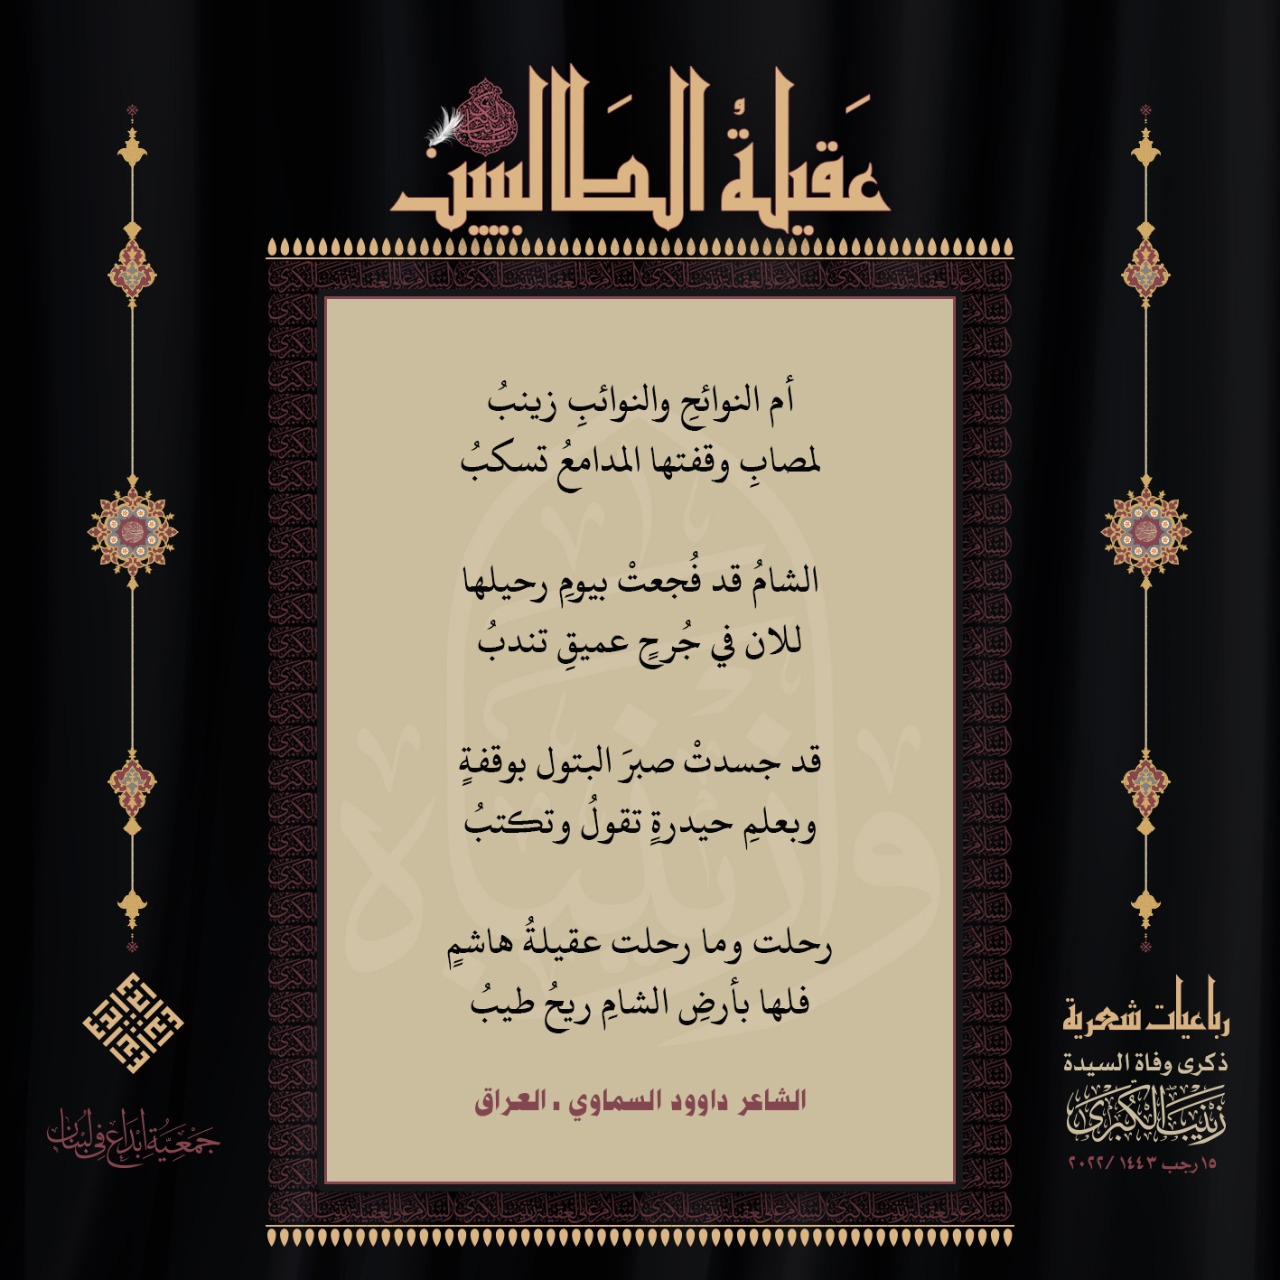 عقيلةُ الطَالبيين
أم النوائحِ والنوائبِ زينبُ
لمصابِ وقفتها المدامعُ تسكبُ
الشامُ قد فُجعتْ بيومِ رحيلها
للان في جُرحٍ عميقِ تندبُ
قد جسدتْ صبرَ البتول بوقفةٍ
وبعلمِ حيدرةٍ تقولُ وتكتبُ
رحلت وما رحلت عقيلةُ هاشمٍ
فلها بأرضِ الشامِ ريحُ طيبُ
الشاعر داوود السماوي . العراق
رباعيات شعرية
ذكرى وفاة السيدة
زَيْنَبَ الْكُبْرَىٰ
١٥ رجب ١٤٤٣ /٢٠٢٢
جَمْعِيَّةُ إبْدَاعٍ فِي لُبْنَان
وا زينباه